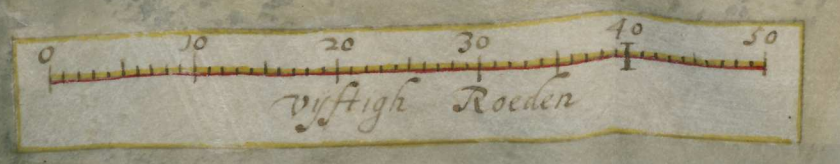 0 10 20 30 40 50
vyftigh Roeden